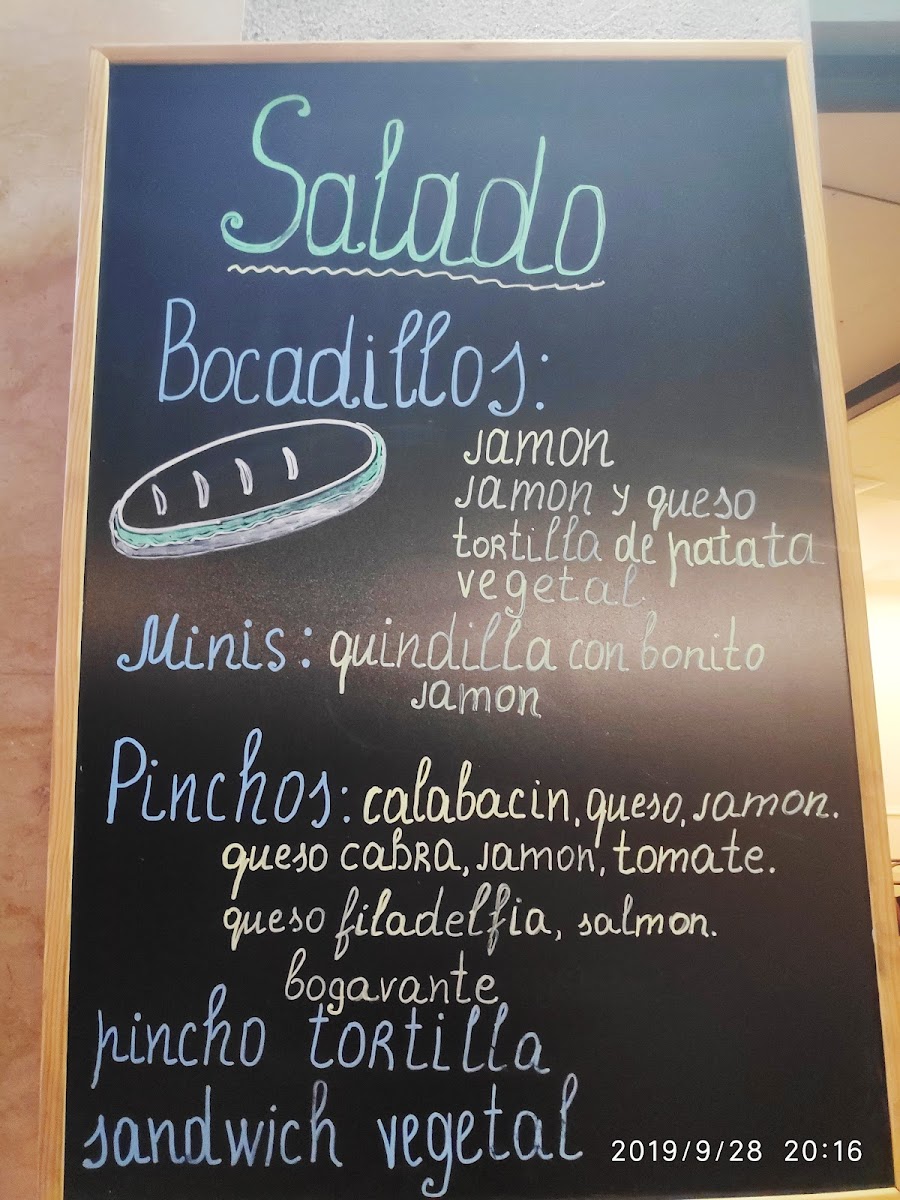 Salado
Bocadillos:
jamon
jamon y queso
tortilla de patata
vegetal
Minis: quindilla con bonito
jamon
Pinchos: calabacin, queso, jamon.
queso cabra, jamon, tomate.
queso filadelfia, salmon.
bogavante
pincho tortilla
sandwich vegetal
2019/9/28 20:16